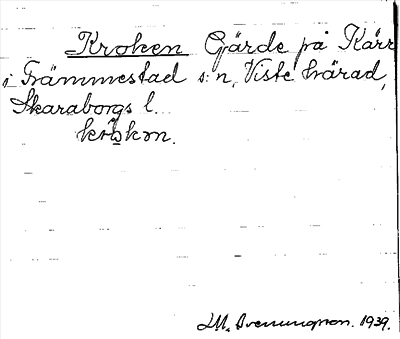 Kroken Gärde på Kärr
i Främmestad s:n, Viste härad,
Skaraborgs l.
1939.